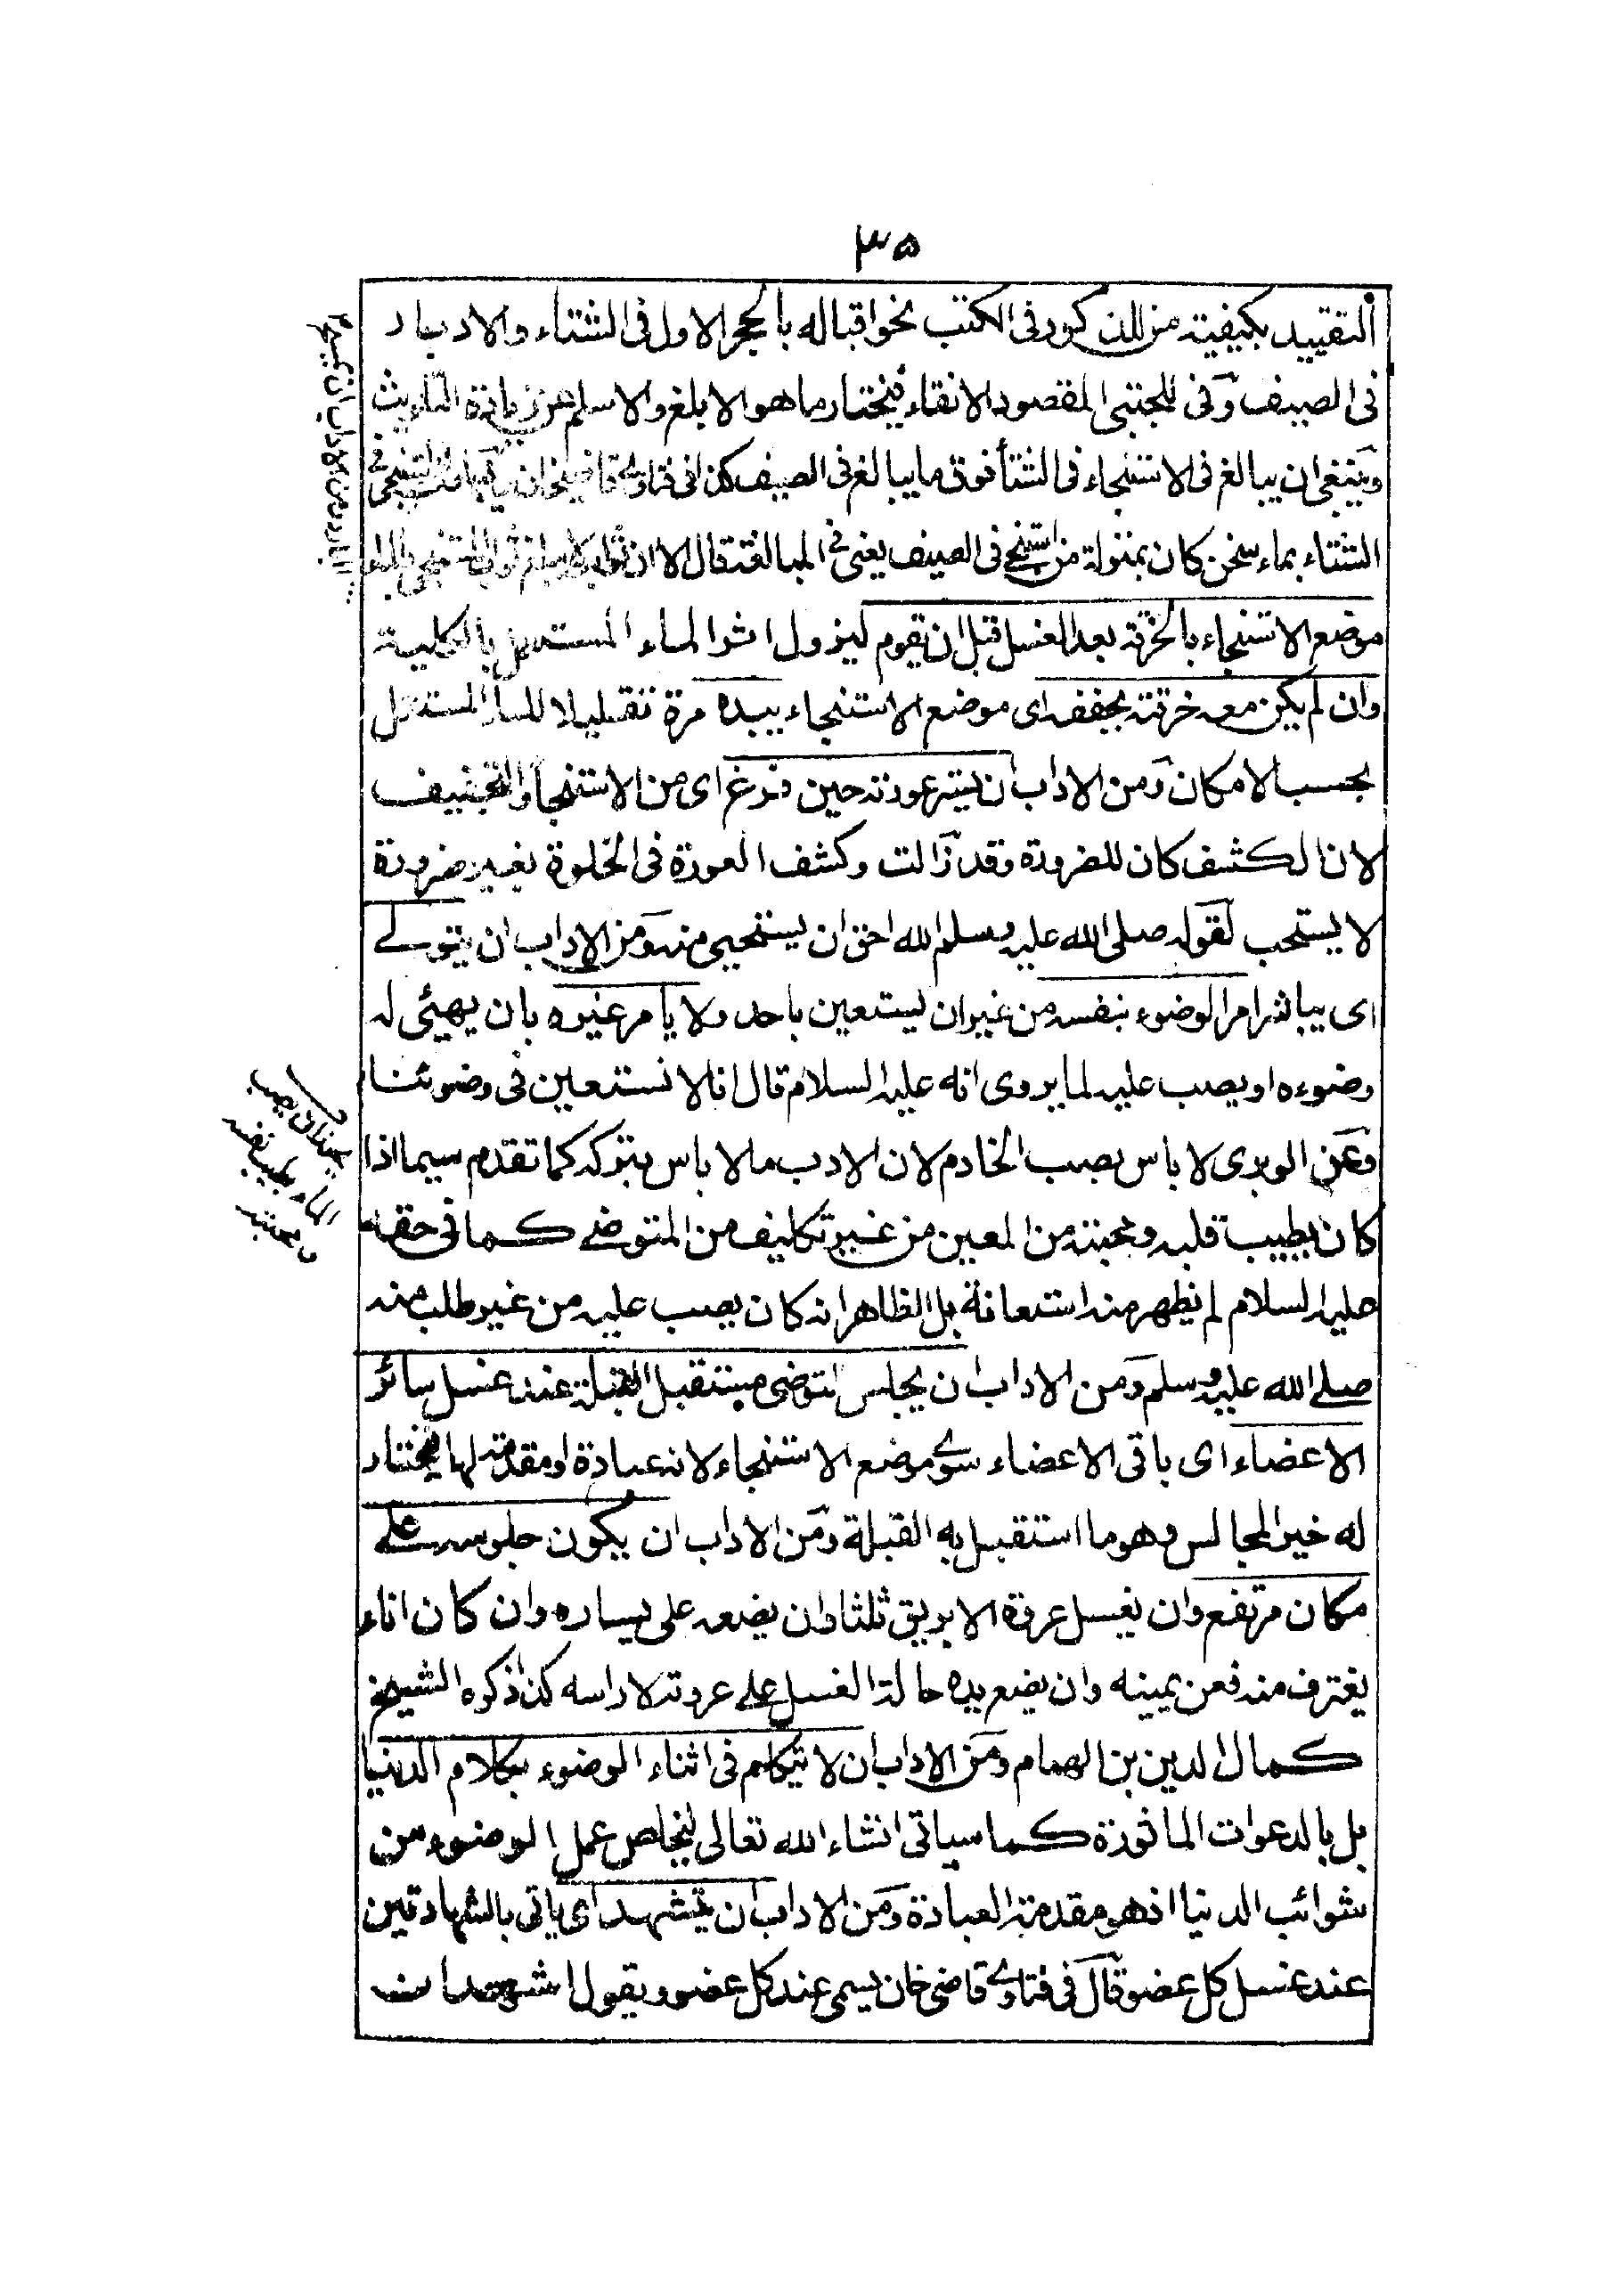 ٣٥
التقييد بكيفية من المذكور فى الكتب نحو اقباله بالحجر الاول فى الشتاء والادبار
فى الصيف وفى المجتبى المقصود الانقاء فيختار ما هو الابلغ والاسلم عن زيادة التلويث
وينبغى ان يبالغ فى الاستنجاء فى الشتأ فوق ما يبالغ فى الصيف كذا فى فتاوى قاضيخان
الشتاء بماء سخن كان بمنزلة من استنجى فى الصيف يعنى فى المبالغة قال الا ان ثوابه
موضع الاستنجاء بالخرقة بعد الغسل قبل ان يقوم ليزول اثر الماء المستعمل بالكلية
وان لم يكن معه خرقة يجففه اى موضع الاستنجاء بيده مرة تقليلا للماء المستعمل
بحسب الامكان ومن الاداب ان يستر عورته حين فرغ اى من الاستنجأ والتجفيف
لان الكشف كان للضرورة وقد زالت وكشف العورة فى الخلوة بغير ضرورة
لا يستحب لقوله صلى الله عليه وسلم الله احق ان يستحيى منه ومن الاداب ان يتولى
اى يباشر امر الوضوء بنفسه من غير ان يستعين باحد ولا يأمر غيره بان يهيئى له
وضوءه او يصب عليه لما يروى انه عليه السلام قال انا لا نستعين فى وضوئنا
وعن الوبرى لا باس بصب الخادم لان الادب ما لا باس بتركه كما تقدم سيما اذا
كان بطيب قلبه ومحبته من المعين من غير تكليف من المتوضى كما فى حقه
عليه السلام لم يظهر منه استعانة بل الظاهر انه كان يصب عليه من غير طلب منه
صلى الله عليه وسلم ومن الاداب ان يجلس المتوضى مستقبل القبلة عند غسل سائر
الاعضاء اى باقى الاعضاء سوى موضع الاستنجاء لانه عبادة او مقدمة لها فيختار
له خير المجالس وهو ما استقبل به القبلة ومن الاداب ان يكون جلوسه على
مكان مرتفع وان يغسل عروة الابريق ثلثا وان يضعه على يساره وان كان اناء
يغترف منه فعن يمينه وان يضع يده حالة الغسل على عروته لا راسه كذا ذكره الشيخ
كمال الدين بن الهمام ومن الاداب ان لا يتكلم فى اثناء الوضوء بكلام الدنيا
بل بالدعوات الماثورة كما سياتى انشاء الله تعالى ليخلص عمل الوضوء من
شوائب الدنيا اذ هو مقدمة العبادة ومن الاداب ان يتشهد اى ياتى بالشهادتين
عند غسل كل عضو قال فى فتاوى قاضى خان يسمى عند كل عضو ويقول اشهد ان
ومن الاداب ان يمسح
بطيب نفسه
ومحبته